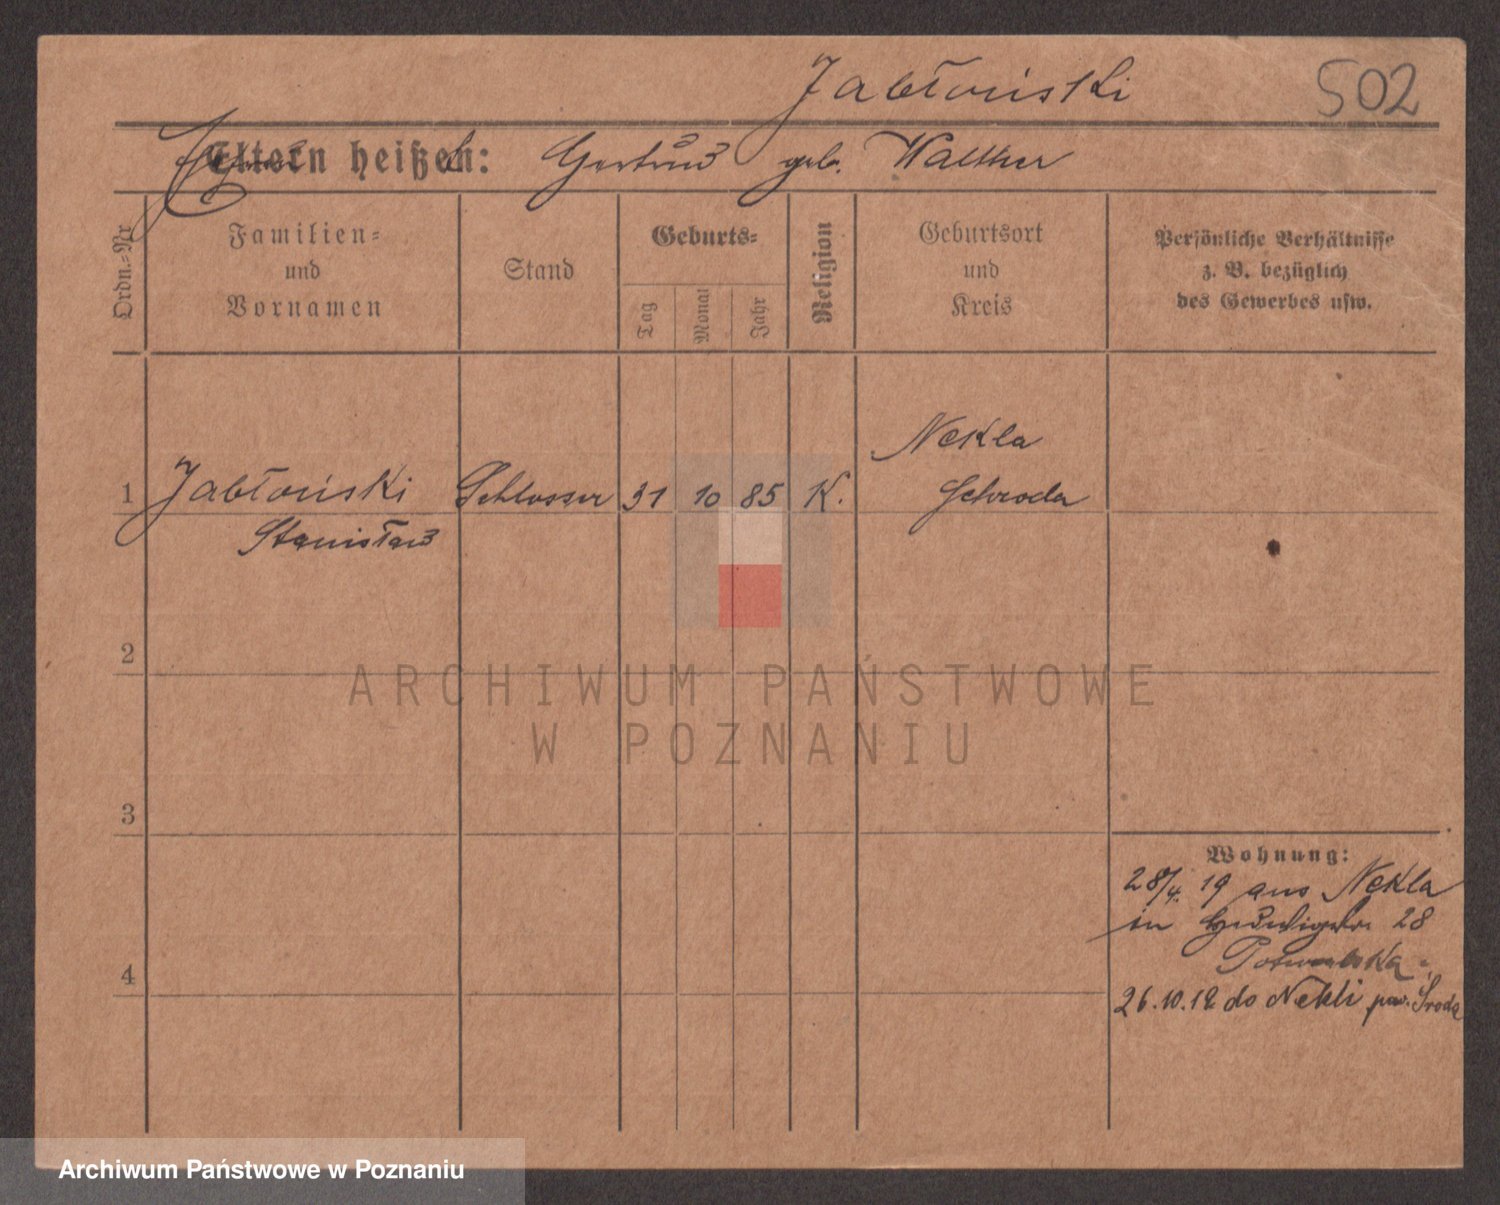 Jabłoński
502
Eltern heißen: Gertrud geb. Walther
Ordn.-Nr
Familien-
und
Vornamen
Stand
Geburts-
Tag
Monat
Jahr
Religion
Geburtsort
und
Kreis
Persönliche Verhältnisse
z. B. bezüglich
des Gewerbes usw.
1 Jabłoński Schlosser 31 10 85 K. Nekla
Stanisław Schroda
2
3
4
Wohnung:
28/4. 19 aus Nekla
in 28
26.10.19 do Nekli pow. Środa
ARCHIWUM PAŃSTWOWE
W POZNANIU
Archiwum Państwowe w Poznaniu